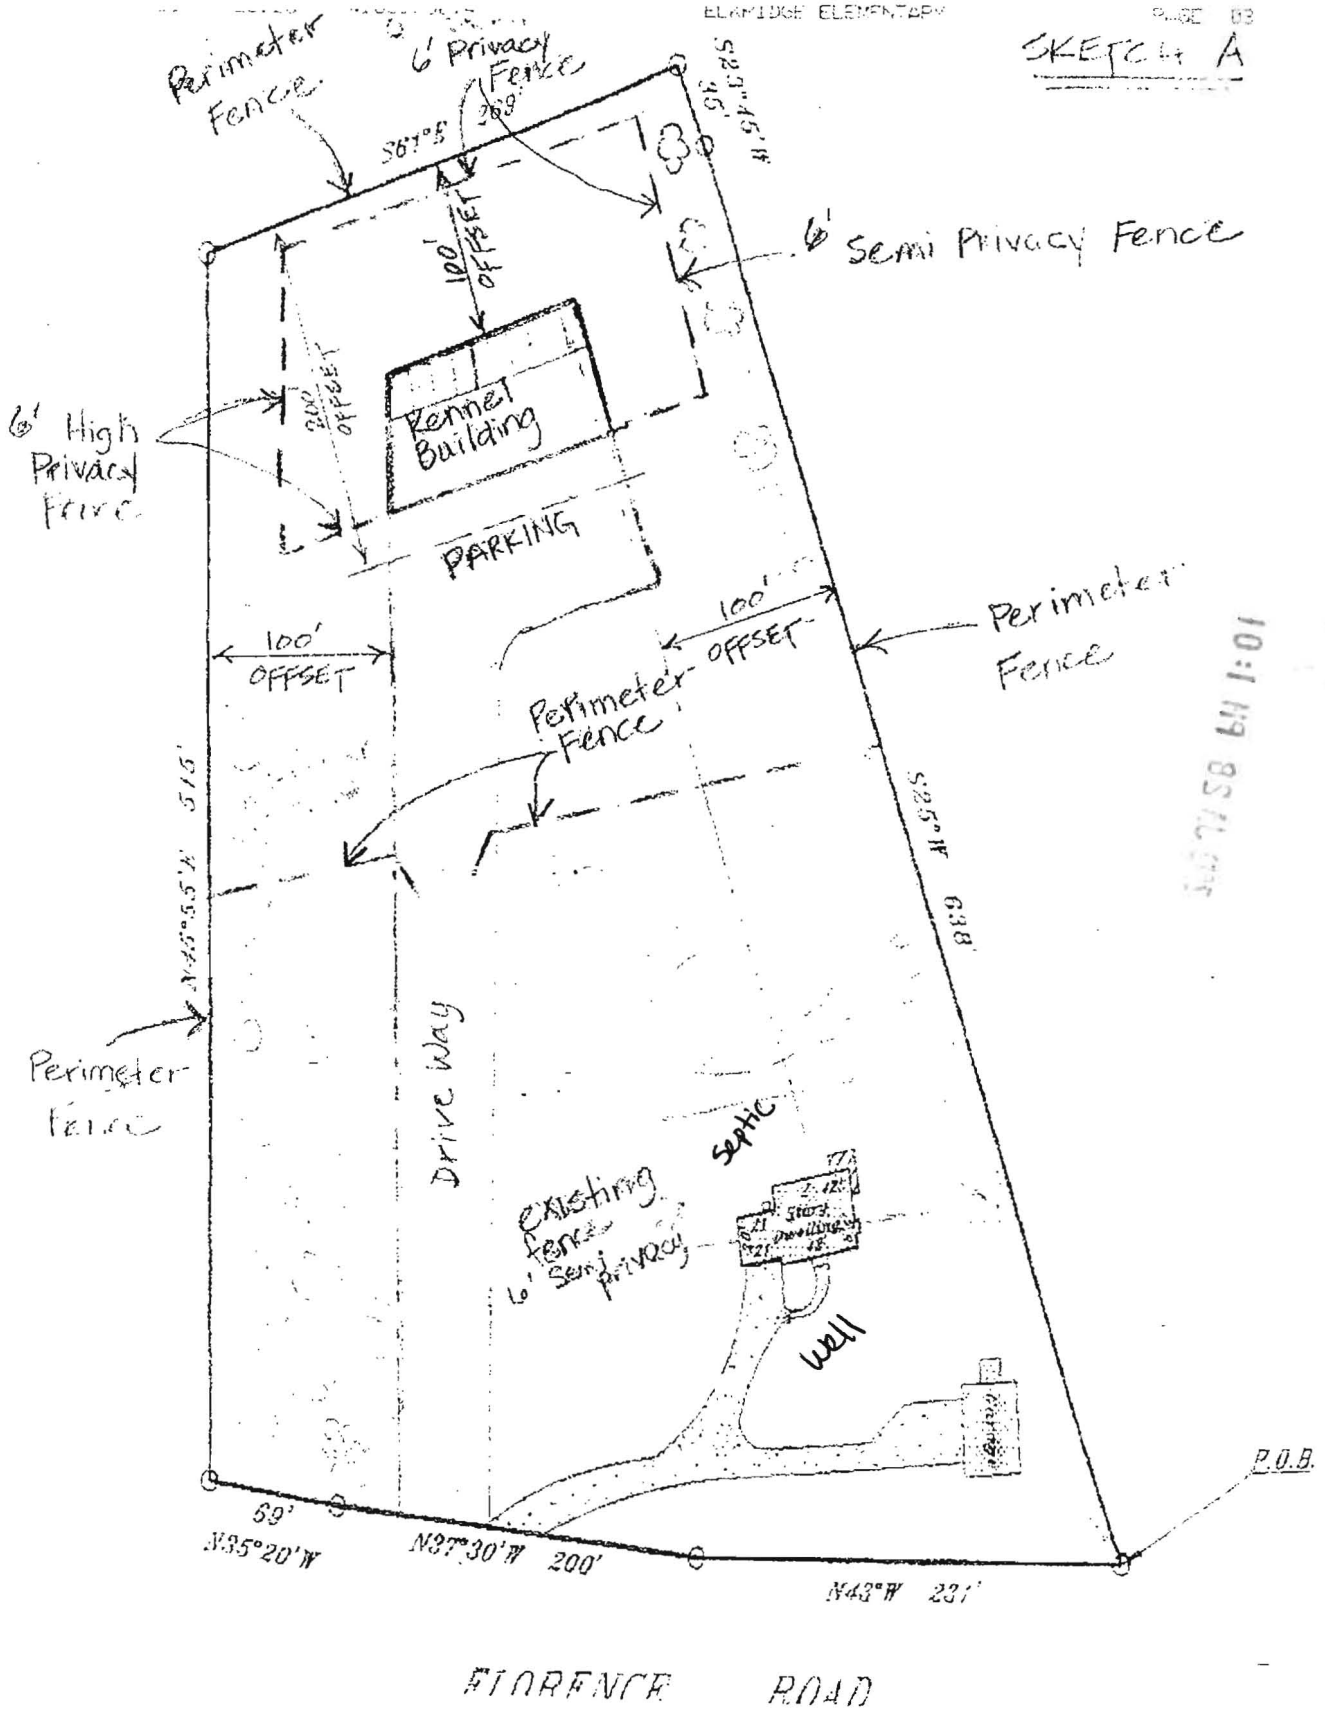 PAGE 03
SKETCH A
Perimeter
Fence
6' Privacy
Fence
S61°E 269'
S23°45'W
35'
100'
OFFSET
6' Semi Privacy Fence
200'
OFFSET
6' High
Privacy
Fence
Kennel
Building
PARKING
100'
OFFSET
100'
OFFSET
Perimeter
Fence
Perimeter
Fence
S25°W 638'
Perimeter
Fence
Drive Way
septic
existing
fence
6' semi
privacy
Story
Dwelling
well
P.O.B.
69'
N35°20'W
N37°30'W 200'
N43°W 231'
FLORENCE ROAD